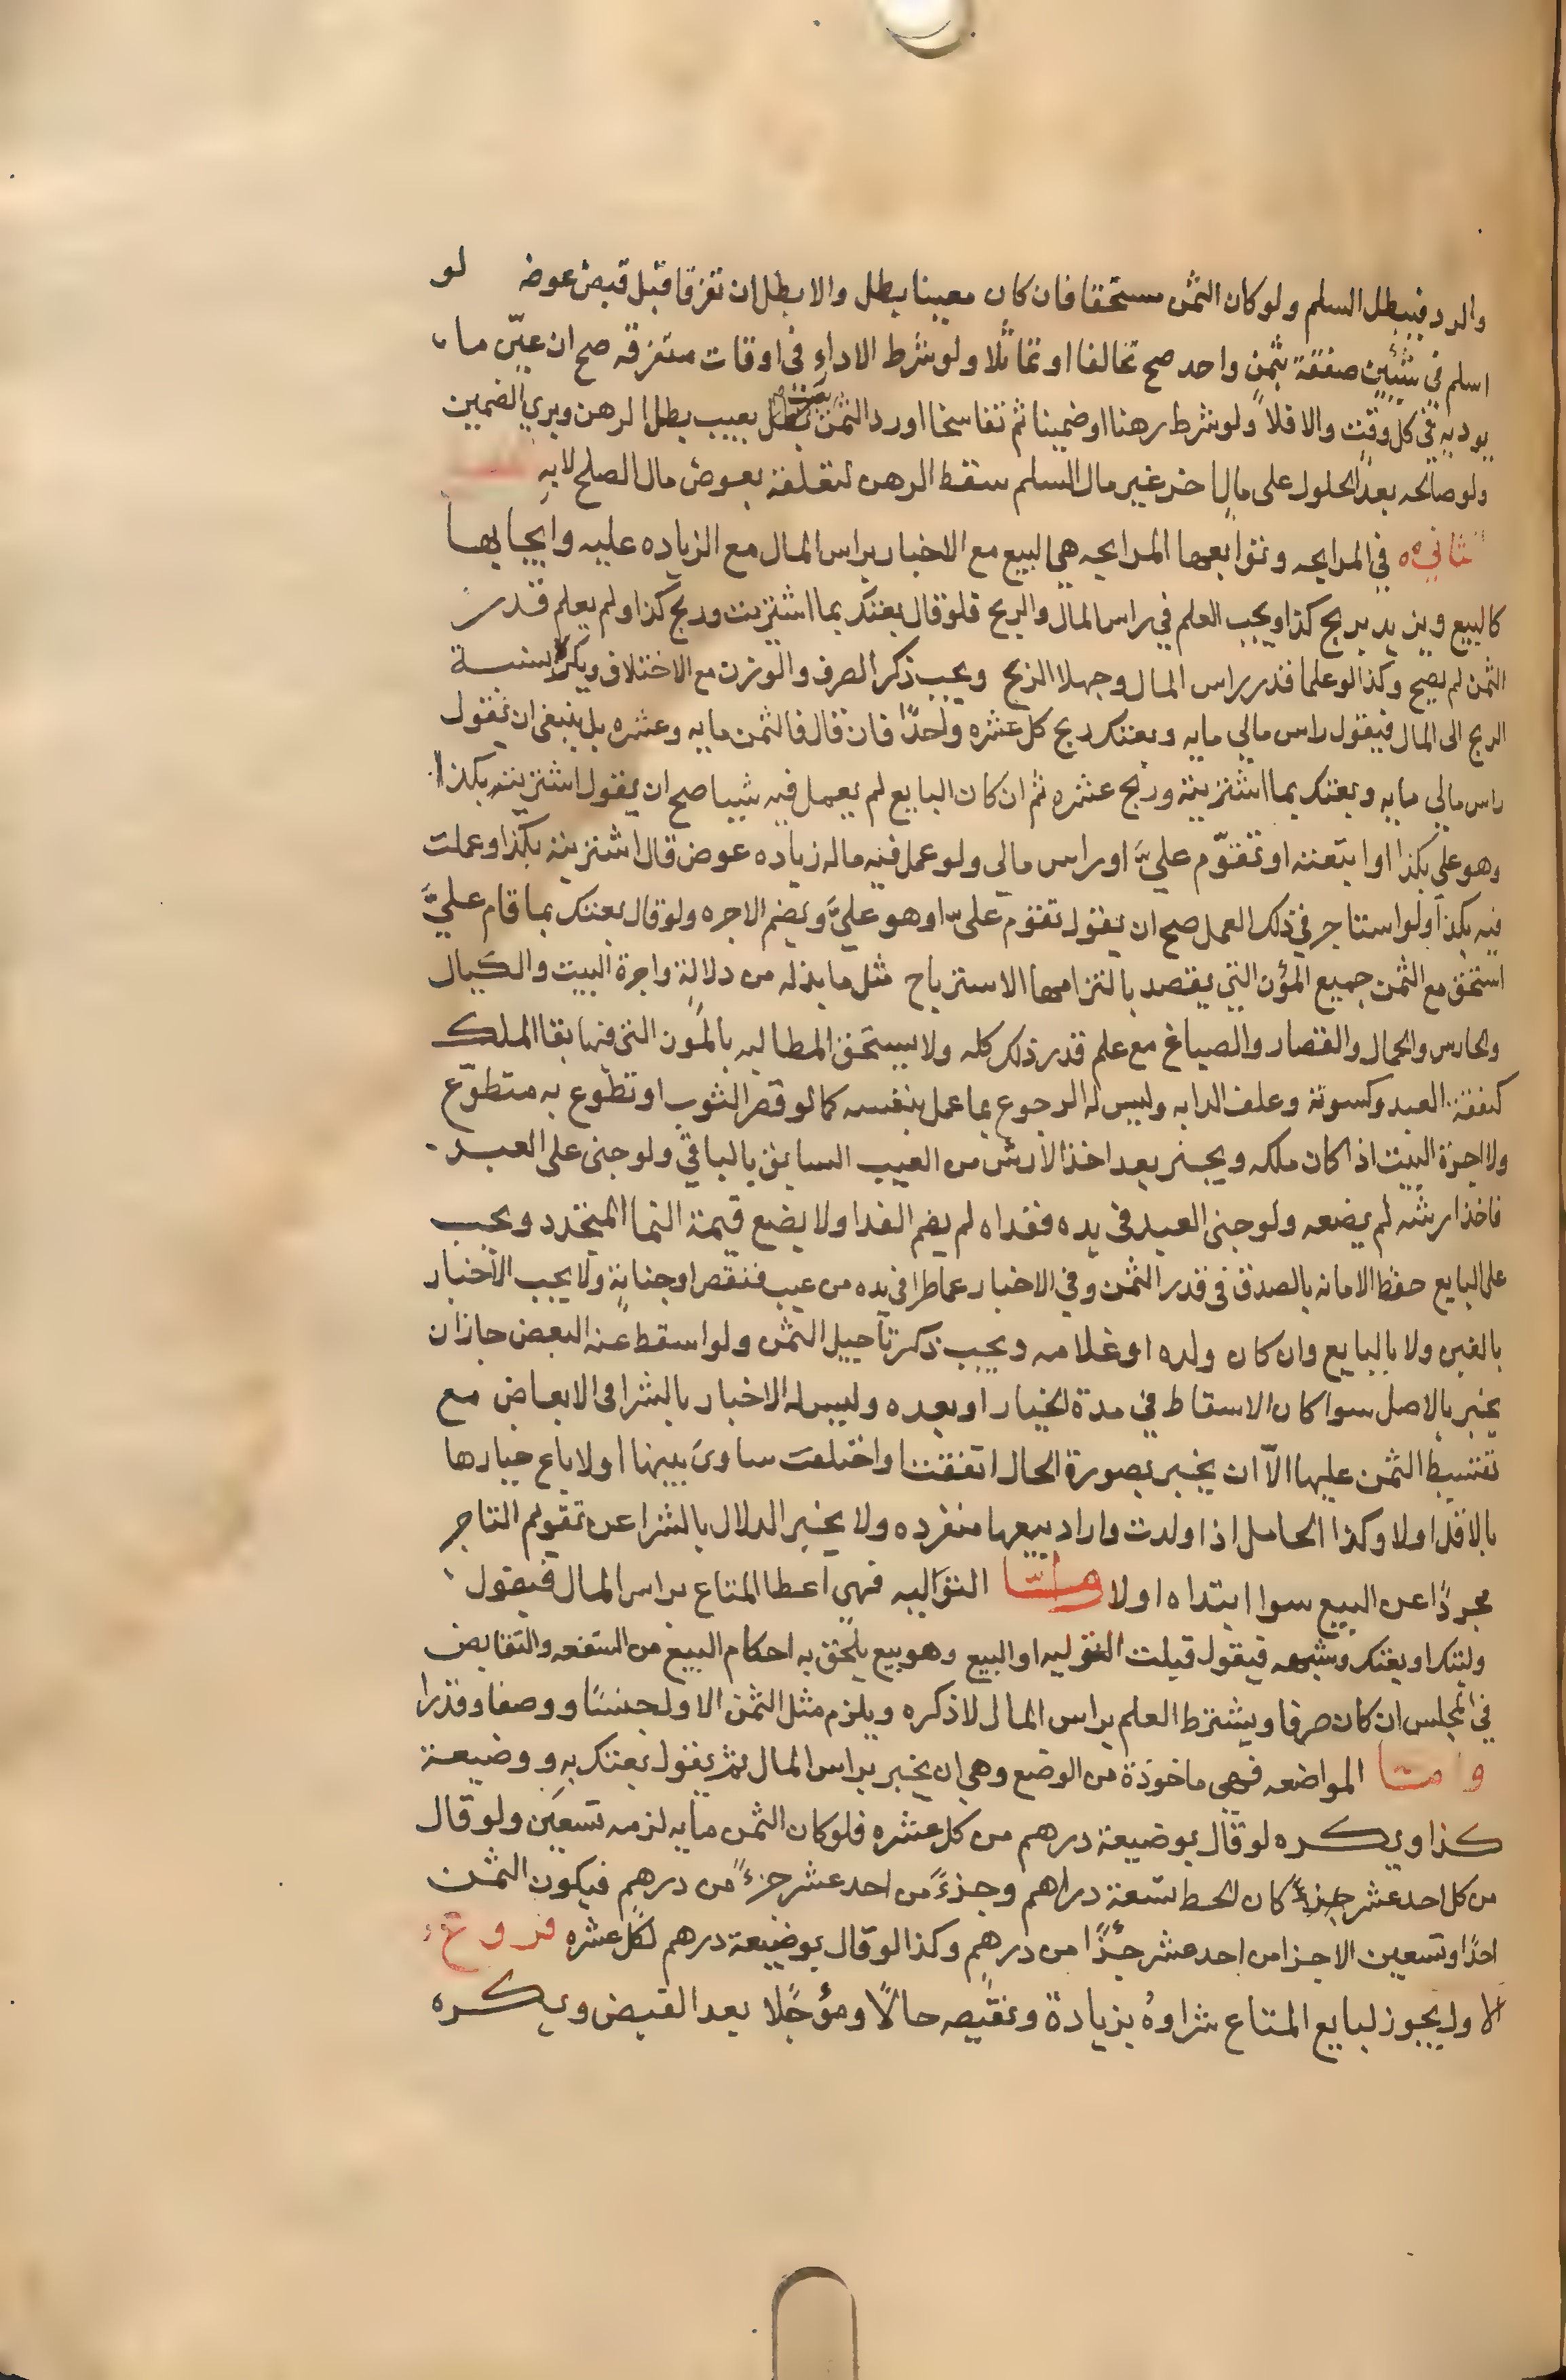 والرد فيبطل السلم ولو كان الثمن مستحقا فان كان معينا بطل والا بطل ان تفرقا قبل قبض عوضه لو
اسلم في شيئين صفقة بثمن واحد صح تخالفا او تماثلا ولو شرط الاداء في اوقات متفرقه صح ان عيّن ما
يوديه في كل وقت والا فلا ولو شرط رهنا او ضمينا ثم تفاسخا او رد الثمن بعيب بطل الرهن وبري الضمين
ولو صالحه بعد الحلول على مال اخر غير مال السلم سقط الرهن لتعلقه بعوض مال الصلح لا به
الثاني في المرابحه وتوابعها المرابحه هي البيع مع الاخبار براس المال مع الزياده عليه وايجابها
كالبيع ويزيد بربح كذا ويجب العلم في راس المال والربح فلو قال بعتك بما اشتريت وربح كذا ولم يعلم قدر
الثمن لم يصح وكذا لو علما قدر راس المال وجهلا الربح ويجب ذكر الصرف والوزن مع الاختلاف ويكره نسبة
الربح الى المال فيقول راس مالي مايه وبعتك بربح كل عشره واحدًا فان قال فالثمن مايه وعشره بل ينبغي ان يقول
راس مالي مايه وبعتك بما اشتريته وربح عشره ثم ان كان البايع لم يعمل فيه شييا صح ان يقول اشتريته بكذا
وهو علي بكذا او ابتعته او تقوّم عليَّ او راس مالي ولو عمل فيه ماله زياده عوض قال اشتريته بكذا وعملت
فيه بكذا ولو استاجر في ذلك العمل صح ان يقول تقوم علىّ او هو عليَّ ويضم الاجره ولو قال بعتك بما قام عليَّ
استحق مع الثمن جميع المؤن التي يقصد بالتزامها الاسترباح مثل ما بذله من دلالة واجرة البيت والكيال
والحارس والحمال والقصار والصباغ مع علم قدر ذلك كله ولا يستحق المطالبه بالمون التي فيها بقا الملك
كنفقة العبد وكسوته وعلف الدابه وليس له الرجوع بما عمل بنفسه كما لو قصر الثوب او تطوع به متطوّع
ولا اجرة البيت اذا كان ملكه ويخبر بعد اخذ الارش من العيب السابق بالباقي ولو جنى على العبد
فاخذ ارشه لم يضعه ولو جنى العبد في يده ففداه لم يضم الفدا ولا يضع قيمة النما المتجدد ويجب
على البايع حفظ الامانه بالصدق في قدر الثمن وفي الاخبار عما طرا في يده من عيب فنقص او جناية ولا يجب الاخبار
بالغبن ولا بالبايع وان كان ولده او غلامه ويجب ذكر تاجيل الثمن ولو اسقط عنه البعض جاز ان
يخبر بالاصل سوا كان الاسقاط في مدة الخيار او بعده وليس له الاخبار بالشرا في الابعاض مع
تقسيط الثمن عليها الّا ان يخبر بصورة الحال اتفقت او اختلفت ساوى بينها او لا باع خيارها
بالاقل او لا وكذا الحامل اذا ولدت واراد بيعها منفرده ولا يخبر الدلال بالشرا عن تقويم التاجر
مجردًا عن البيع سوا ابتداه او لا وامّا التوليه فهي اعطا المتاع براس المال فيقول
وليتك او بعتك وشبهه فيقول قبلت التوليه او البيع وهو بيع يلحق به احكام البيع من الشفعه والتقابض
في المجلس ان كان صرفا ويشترط العلم براس المال لا ذكره ويلزم مثل الثمن الاول جنسًا ووصفا وقدرا
وامّا المواضعه فهي ماخوذة من الوضع وهي ان يخبر براس المال ثم يقول بعتك به ووضيعة
كذا ويكره لو قال بوضيعة درهم من كل عشره فلو كان الثمن مايه لزمه تسعين ولو قال
من كل احد عشر كان الحط تسعة دراهم وجزءً من احد عشر جزءً من درهم فيكون الثمن
احدًا وتسعين الا جزا من احد عشر جزًا من درهم وكذا لو قال بوضيعة درهم لكل عشره فروع
الاول يجوز لبايع المتاع شراوهُ بزيادة ونقيصه حالًا ومؤجلًا بعد القبض ويكره